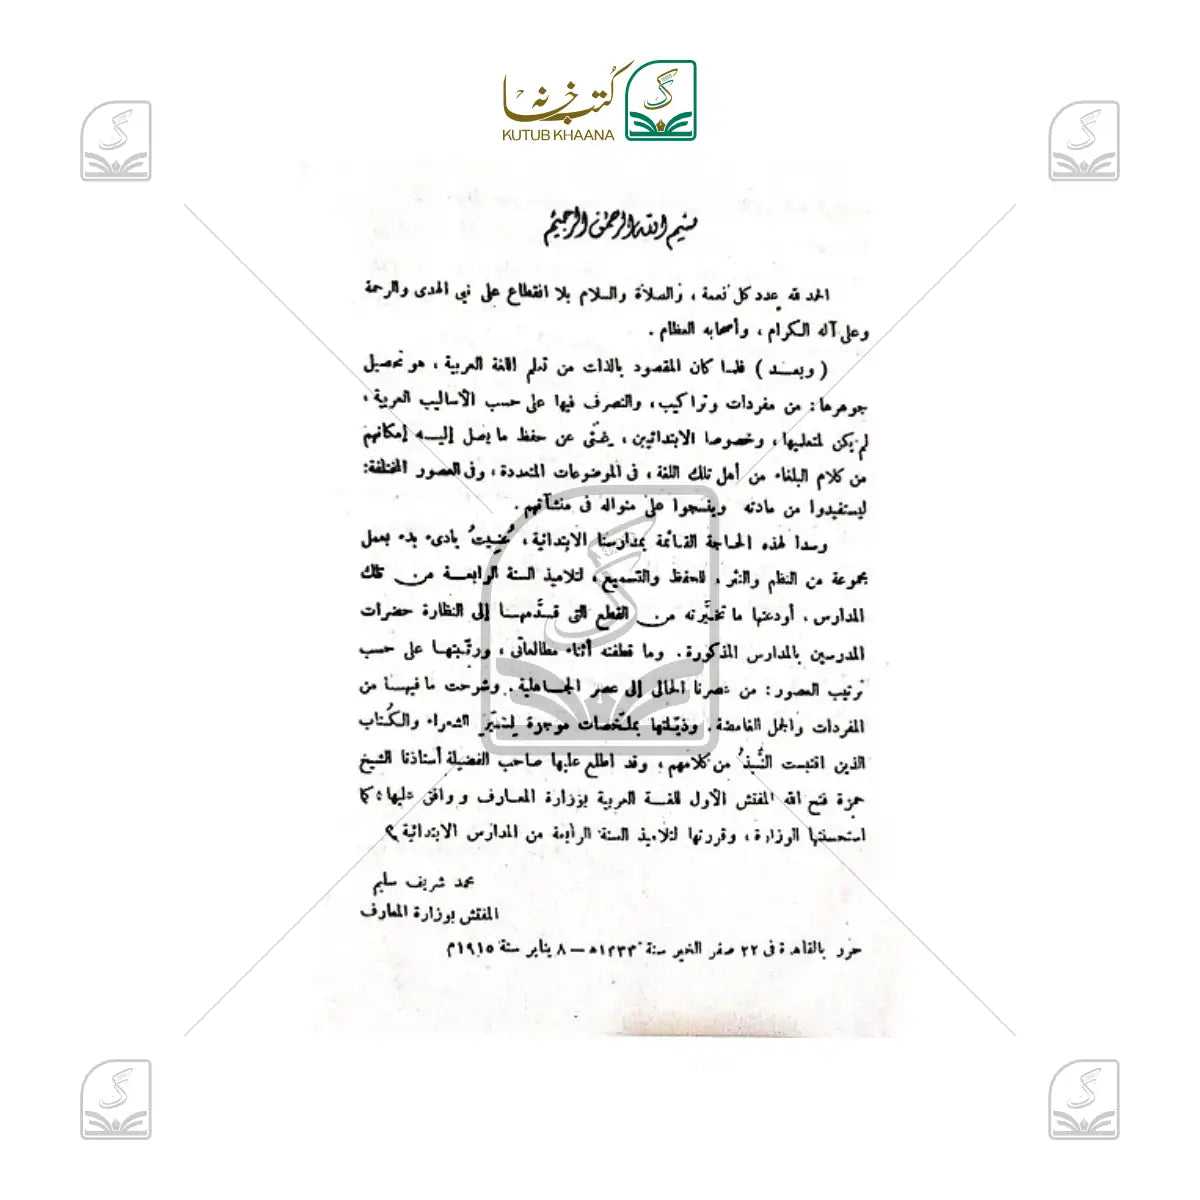 كتب خانہ
KUTUB KHAANA
بسم الله الرحمن الرحيم
الحمد لله عدد كل نعمة ، والصلاة والسلام بلا انقطاع على نبي الهدى والرحمة
وعلى آله الكرام ، وأصحابه العظام .
( وبعــد ) فلما كان المقصود بالذات من تعلم اللغة العربية ، هو تحصيل
جوهرها : من مفردات وتراكيب ، والتصرف فيها على حسب الأساليب العربية ،
لم يكن لمتعلميها ، وخصوصا الابتدائيين ، غنًى عن حفظ ما يصل إليـــه إمكانهم
من كلام البلغاء من أهل تلك اللغة ، فى الموضوعات المتعددة ، وفى العصور المختلفة :
ليستفيدوا من مادته وينسجوا على منواله فى منشآتهم .
وسدا لهذه الحاجة القائمة بمدارسنا الابتدائية ، عُنيتُ بادئ بدء بعمل
مجموعة من النظم والنثر . للحفظ والتسميع ، لتلاميذ السنة الرابعــة من تلك
المدارس . أودعتها ما تخيَّرته من القطع التى قدَّمهــا إلى النظارة حضرات
المدرسين بالمدارس المذكورة . وما قطفته أثناء مطالعاتى ، ورتّبتهـا على حسب
ترتيب العصور : من عصرنا الحالى إلى عصر الجــاهلية . وشرحت ما فيهــا من
المفردات والجمل الغامضة . وذيّلتها بملخّصات موجزة لسِيَر الشعراء والكُتاب
الذين اقتبست النُّبذ من كلامهم ، وقد اطلع عليها صاحب الفضيلة أستاذنا الشيخ
حمزة فتح الله المفتش الأول للغــة العربية بوزارة المعــارف ووافق عليها ، كما
استحسنتها الوزارة ، وقررتها لتلاميذ السنة الرابعة من المدارس الابتدائية م
محمد شريف سليم
المفتش بوزارة المعارف
حرر بالقاهرة فى ٢٢ صفر الخير سنة ١٣٣٣ھ – ٨ يناير سنة ١٩١٥م